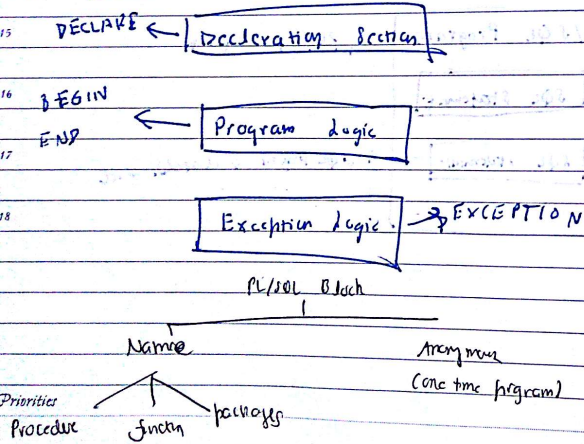 15 DECLARE Decleration Section
16 BEGIN
Program Logic
END
17
18 Exception Logic EXCEPTION
PL/SQL Block
Name Anonymous
(one time program)
Priorities
Procedure function packages